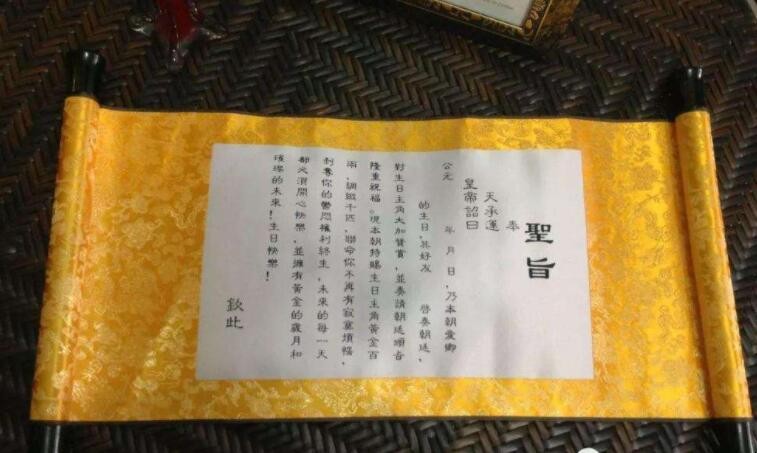 聖旨
奉
天承運
皇帝詔曰
公元　年　月　日，乃本朝愛卿
的生日，其好友　啓奏朝廷，
對生日主角大加贊賞，並奏請朝廷頒旨
隆重祝福。現本朝特賜生日主角黃金百
兩，綢緞千匹，聯命你不再有寂寞煩惱，
剝奪你的鬱悶權利終生，未來的每一天
都必須開心快樂，並擁有黃金的歲月和
璀璨的未來！生日快樂！
欽此